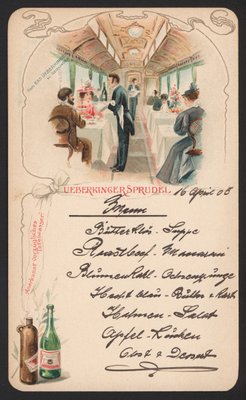 UEBERKINGER SPRUDEL.
16 April 05
Menu
Suppe
Roastbeef -
Blumenkohl - Ochsenzunge
Hecht blau - Butter & Kart.
Hahnen - Salat
Apfel - Kuchen
Obst & Dessert
Anerkannt vorzügliches Tafelwasser.